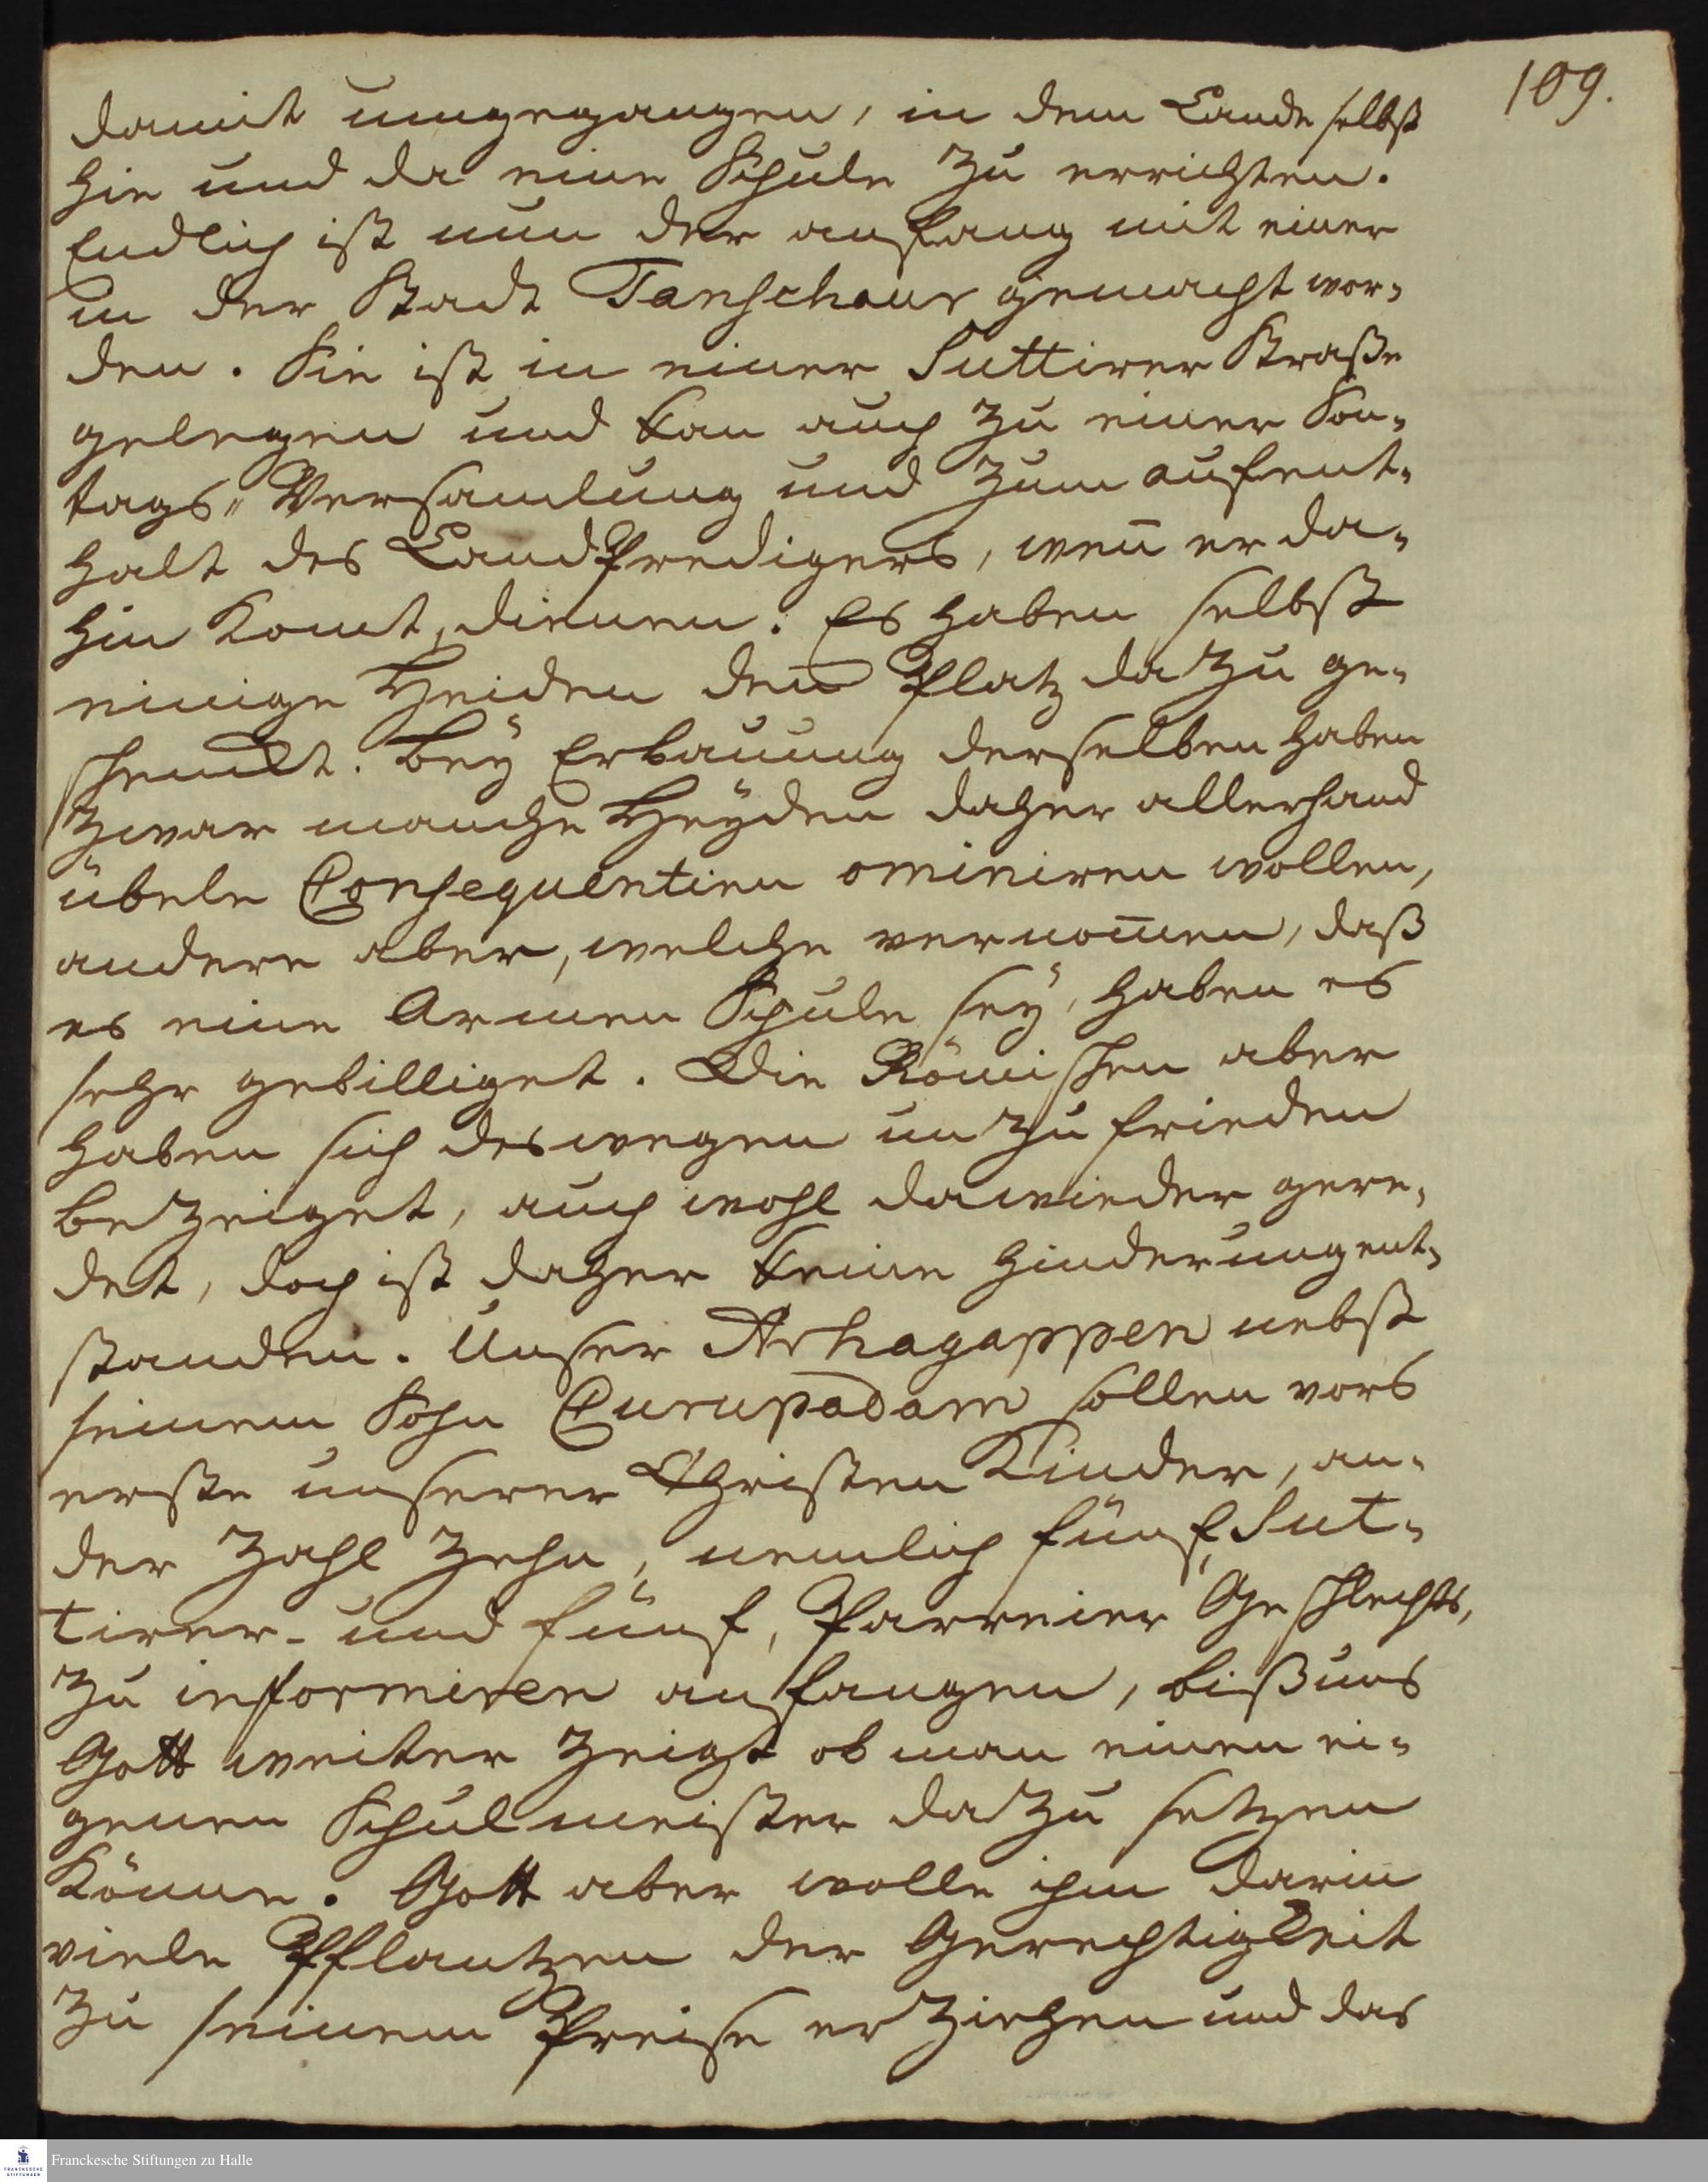 109.
damit umgegangen, in dem Lande selbst
hie und da eine Schule zu errichten.
Endlich ist nun der anfang mit einer
in der Stadt Tanschaur gemacht wor-
den. Sie ist in einer Suttirer Straße
gelegen und kan auch zu einer Son-
tags-Versamlung und zum aufent-
halt des Landpredigers, weñ er da-
hin komt, dienen. Es haben selbst
einige Heiden den Platz dazu ge-
schenckt. Bey Erbauung derselben haben
zwar manche Heyden daher allerhand
übele Consequentien ominiren wollen,
andere aber, welche vernom̄en, daß
es eine Armen Schule sey, haben es
sehr gebilliget. Die Römischen aber
haben sich deswegen unzufrieden
bezeiget, auch wohl dawieder gere-
det, doch ist daher keine Hinderung ent-
standen. Unser Arhagappen nebst
seinem Sohn Curupadam sollen vors
erste unserer Christen Kinder, an-
der Zahl Zehn, nemlich fünf Sut-
tirer- und fünf, Parreier Geschlechts,
zu informiren anfangen, biß uns
Gott weiter zeigt ob man einen ei-
genen Schulmeister dazu setzen
könne. Gott aber wolle ihm darin
viele Pflantzen der Gerechtigkeit
zu seinem Preise erziehen und das
Franckesche Stiftungen zu Halle
FRANCKESCHE
STIFTUNGEN